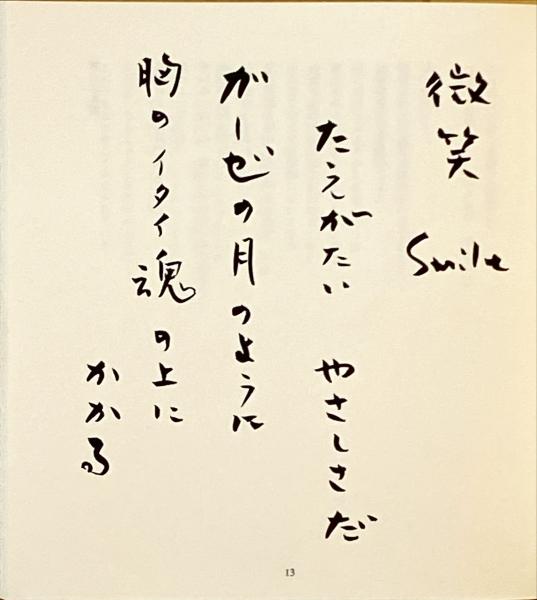 微笑 Smile
たえがたい やさしさだ
ガーゼの月のように
胸のイタイ魂の上に
かかる
13